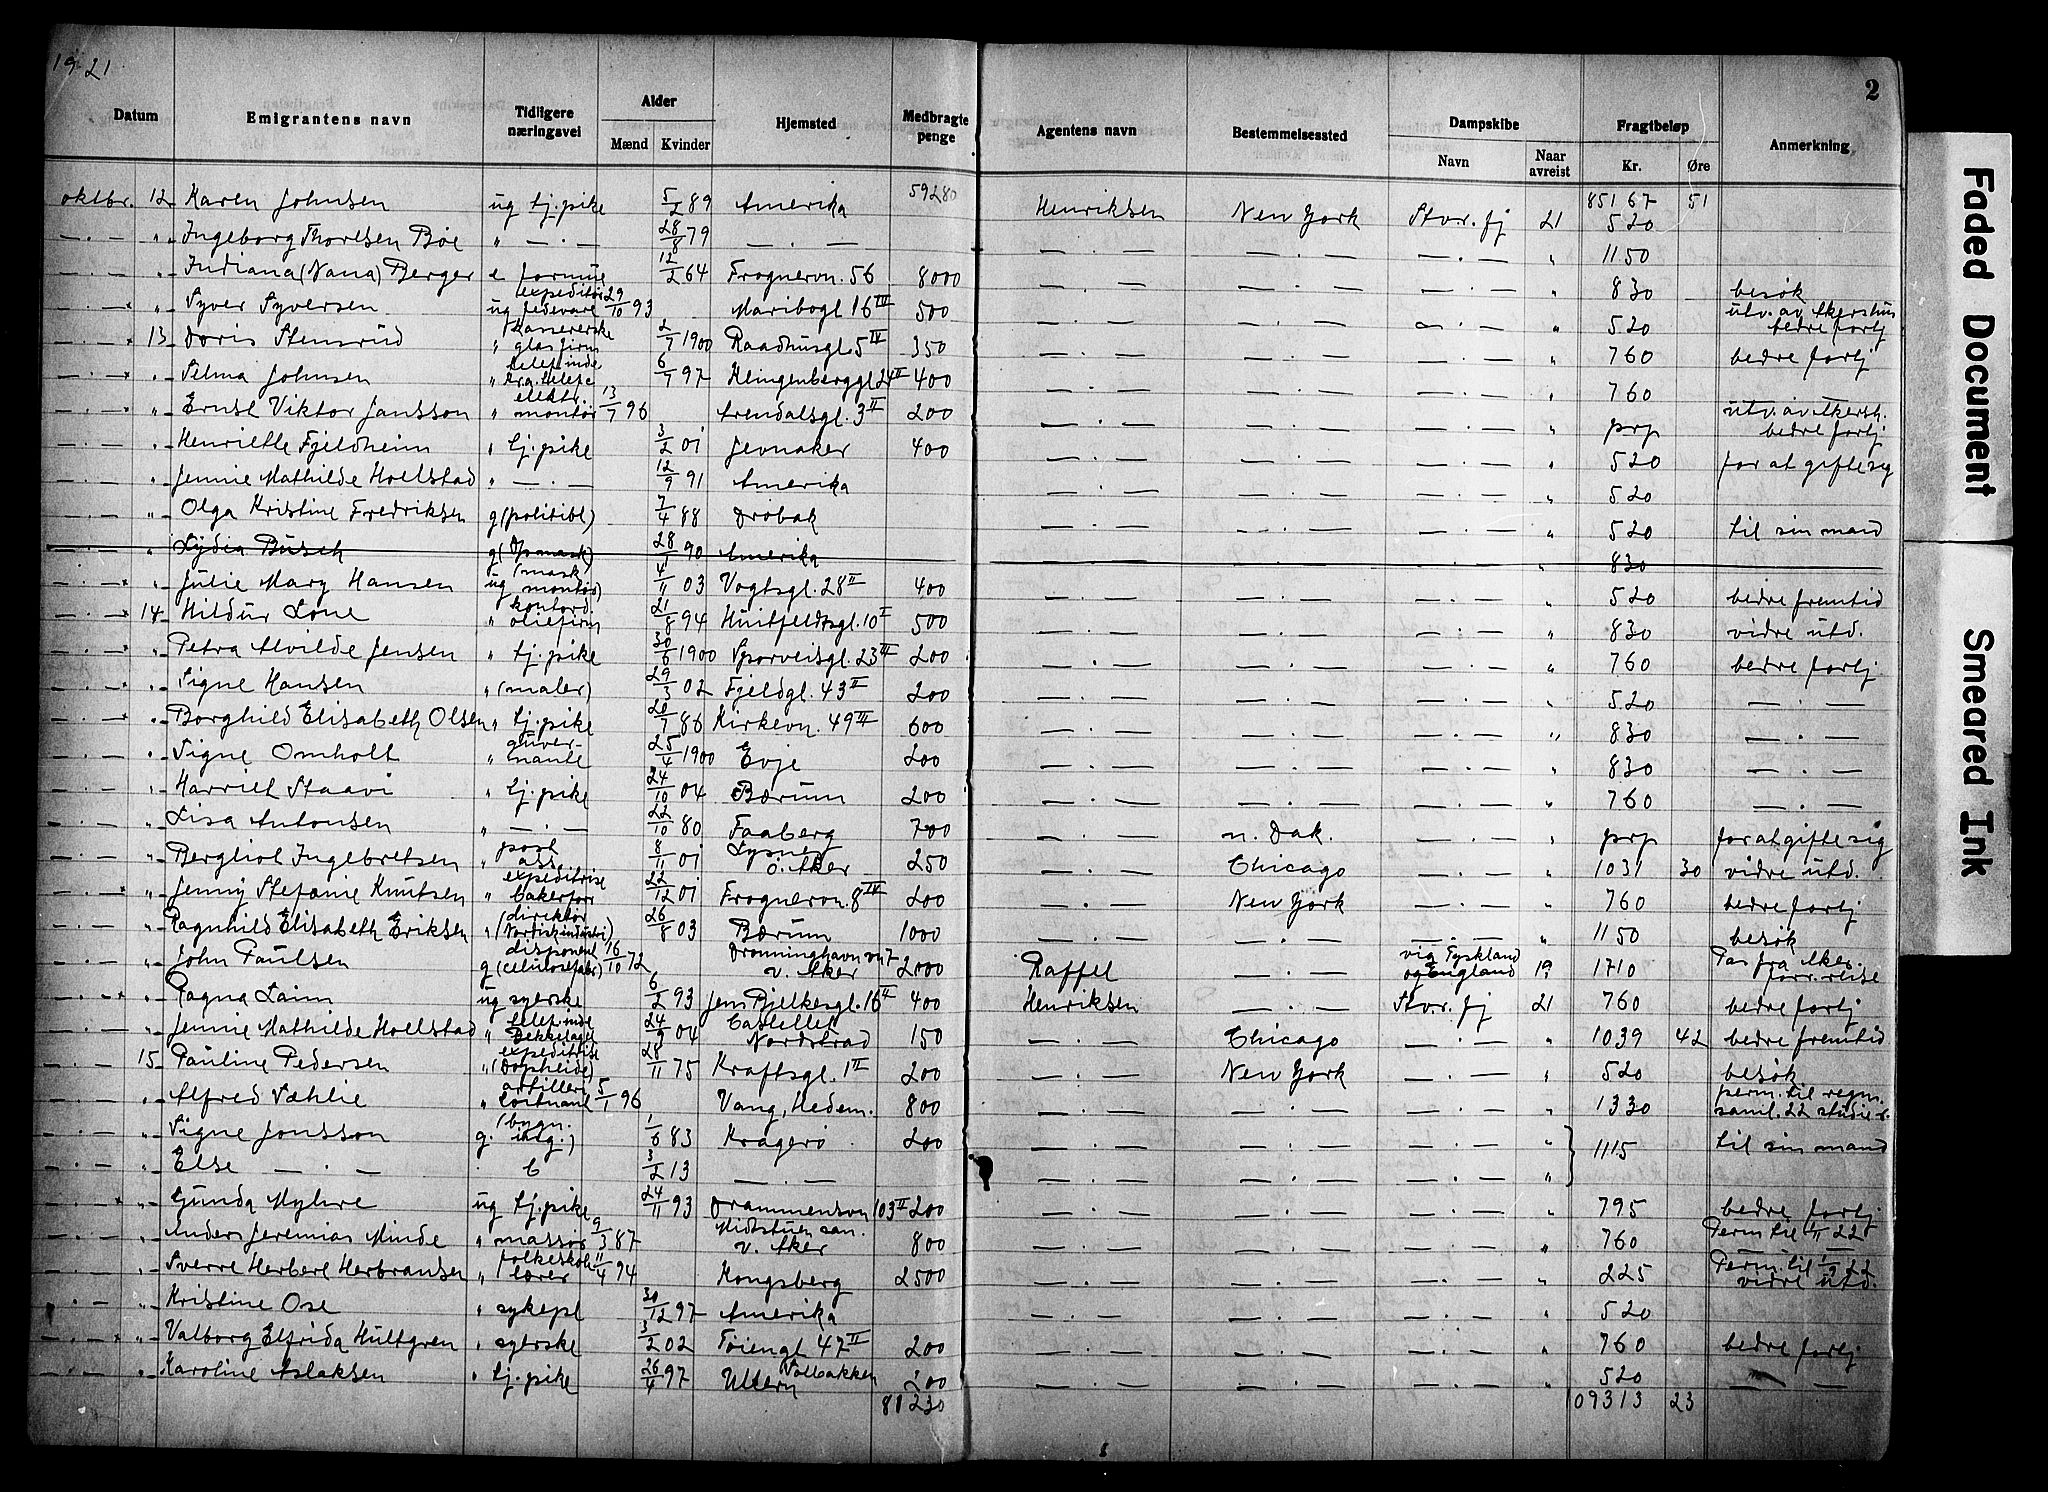 1921
2
Datum | Emigrantens navn | Tidligere næringsvei | Alder Mænd Kvinder | Hjemsted | Medbragte penge | Agentens navn | Bestemmelsessted | Dampskibe Navn | Naar avreist | Fragtbeløp Kr. Øre | Anmerkning
59280 | 85167 51
oktbr. 12 Karen Johnsen | ug tj.pike | 5/2 89 | Amerika | Henriksen | New York | Stvr. fj | 21 | 520
— . — " Ingeborg Thorelsen Bøe | " — . — | 28/8 79 | — . — | — . — | — . — | — . — | " | 1150
— . — " Indiana (Nana) Berger | e formue | 12/2 64 | Frognervn. 56 | 8000 | — . — | — . — | — . — | " | 830 | besøk
— . — " Syver Syversen | ug expeditør fedevare | 29/10 93 | Maribogt 16 IV | 500 | — . — | — . — | — . — | " | 520 | utv. av Akershus bedre fortj
— . — 13 Doris Stensrud | " kassererske glasfirm | 2/7 1900 | Raadhusgt. 5 IV | 350 | — . — | — . — | — . — | " | 760 | bedre fortj
— . — " Selma Johnsen | " telef.inde Kra. telef | 6/7 97 | Klingenberggt 24 II | 400 | — . — | — . — | — . — | " | 760
— . — " Ernst Viktor Jansson | " elektr. montør | 13/7 96 | Arendalsgt. 3 II | 200 | — . — | — . — | — . — | " | prp | utv. av Akersh. bedre fortj
— . — " Henriette Fjeldheim | " tj.pike | 3/2 01 | Jevnaker | 400 | — . — | — . — | — . — | " | 520 | for at gifte sig
— . — " Jennie Mathilde Hoelstad | " — . — | 12/9 91 | Amerika | — . — | — . — | — . — | " | 520
— . — " Olga Kristine Fredriksen | g (politibt) | 7/4 88 | Drøbak | — . — | — . — | — . — | " | 520 | til sin mand
" Lydia Busch | g (Opmask) | 28/1 90 | Amerika | " | 830
— . — " Julie Mary Hansen | ug (mask montør) | 4/11 03 | Vogtsgt. 28 II | 400 | — . — | — . — | — . — | " | 520 | bedre fremtid
— . — 14 Hildur Lone | " kontord. oliefirm | 21/8 94 | Huitfeldtsgt. 10 I | 500 | — . — | — . — | — . — | " | 830 | vidre utd.
— . — " Petra Alvilde Jensen | " tj.pike | 30/6 1900 | Sporveisgt. 23 III | 200 | — . — | — . — | — . — | " | 760 | bedre fortj
— . — " Signe Hansen | " (maler) | 29/3 02 | Fjeldgt. 43 II | 200 | — . — | — . — | — . — | " | 520 | — . —
— . — " Borghild Elisabeth Olsen | " tj.pike | 20/7 86 | Kirkevn. 49 III | 600 | — . — | — . — | — . — | " | 830 | — . —
— . — " Signe Omholt | " guvernante | 25/4 1900 | Evje | 200 | — . — | — . — | — . — | " | 830 | — . —
— . — " Harriet Staavi | " tj.pike | 24/10 04 | Bærum | 200 | — . — | — . — | — . — | " | 760 | — . —
— . — " Lisa Antonsen | " — . — | 22/10 80 | Faaberg | 700 | — . — | n. Dak. | — . — | " | prp | for at gifte sig
— . — " Bergliot Ingebretsen | " post ass. | 8/11 01 | Lysney ø. Aker | 250 | — . — | Chicago | — . — | " | 1031 30 | vidre utd.
— . — " Jenny Stefanie Knutsen | " expeditrise bakerforr | 22/12 01 | Frognervn. 8 IV | 200 | — . — | New York | — . — | " | 760 | bedre fortj
— . — " Ragnhild Elisabeth Eriksen | " (direktør Nordiskindustri) | 26/8 03 | Bærum | 1000 | — . — | — . — | — . — | " | 1150 | besøk
— . — " John Paulsen | g disponent (celulosefabr) | 16/10 72 | Dronninghavn vn 7 v. Aker | 2000 | Raffel | — . — | via Tyskland og England | 19 | 1710 | Pas fra Aker forr. reise
— . — " Ragna Laim | ug syerske | 6/2 93 | Jens Bjelkesgt. 16 II | 400 | Henriksen | — . — | Stvr. fj | 21 | 760 | bedre fortj
— . — " Jennie Mathilde Hoelstad | " telef.inde Bekkelaget | 24/9 04 | Castellet Nordstrad | 150 | — . — | Chicago | — . — | " | 1039 42 | bedre fremtid
— . — 15 Pauline Pedersen | " expeditrise (Dopheide) | 28/11 75 | Kraftsgt. 1 II | 200 | — . — | New York | — . — | " | 520 | besøk
— . — " Alfred Væhlie | " artilleri løitnant | 5/1 96 | Vang, Hedem. | 800 | — . — | — . — | — . — | " | 1330 | perm. til regm. saml. 22 studie
— . — " Signe Jonsson | g. (bygn. intg.) | 1/6 83 | Kragerø | 200 | — . — | — . — | — . — | " | 1115 | til sin mand
— . — " Else — . — | b | 3/2 13 | — . — | — . — | — . — | — . — | "
— . — " Gunda Myhre | ug tj.pike | 24/11 93 | Drammensvn 103 II | 200 | — . — | — . — | — . — | " | 795 | bedre fortj
— . — " Anders Jeremias Minde | " massør | 9/3 87 | Midtstuen san. v. Aker | 800 | — . — | — . — | — . — | " | 760 | Perm til 1/11 22
— . — " Sverre Herbert Herbransen | " folkeskole lærer | 11/4 94 | Kongsberg | 2500 | — . — | — . — | — . — | " | 225 | Perm. til 1/9 22 vidre utd.
— . — " Kristine Ose | " sykepl | 30/12 97 | Amerika | — . — | — . — | — . — | " | 520
— . — " Valborg Elfrida Hultgren | " syerske | 3/2 02 | Tøiengt 47 II | 200 | — . — | — . — | — . — | " | 760 | bedre fortj
— . — " Karoline Aslaksen | " tj.pike | 26/4 97 | Ullern Solbakken | 200 | — . — | — . — | — . — | " | 520 | — —
81230 | 109313 23
Faded Document
Smeared Ink